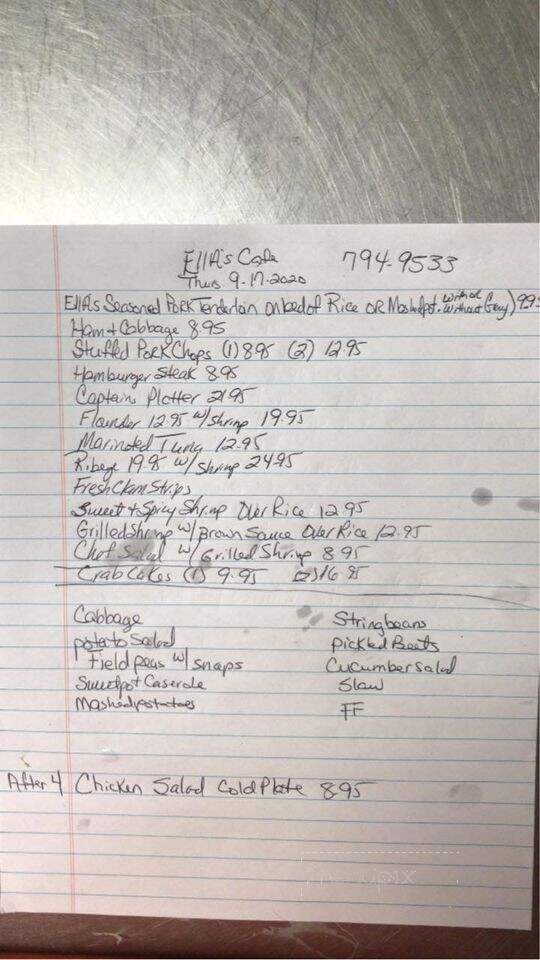 Ella's Cafe 794-9533
Thurs 9-17-2020
Ella's Seasoned Pork Tenderloin on bed of Rice OR Mashed pot. with or without Gravy) 9.95
Ham + Cabbage 8.95
Stuffed Pork Chops (1) 8.95 (2) 12.95
Hamburger Steak 8.95
Captain Platter 21.95
Flounder 12.95 w/ shrimp 19.95
Marinated Tuna 12.95
Ribeye 19.95 w/ shrimp 24.95
Fresh Clam Strips
Sweet + Spicy Shrimp Over Rice 12.95
Grilled Shrimp w/ Brown Sauce Over Rice 12.95
Chef Salad w/ Grilled Shrimp 8.95
Crab Cakes (1) 9.95 (2) 16.95
Cabbage Stringbeans
potato Salad pickled Beets
field peas w/ snaps Cucumber salad
Sweetpot Caserole Slaw
Mashed potatoes FF
After 4 Chicken Salad Cold Plate 8.95